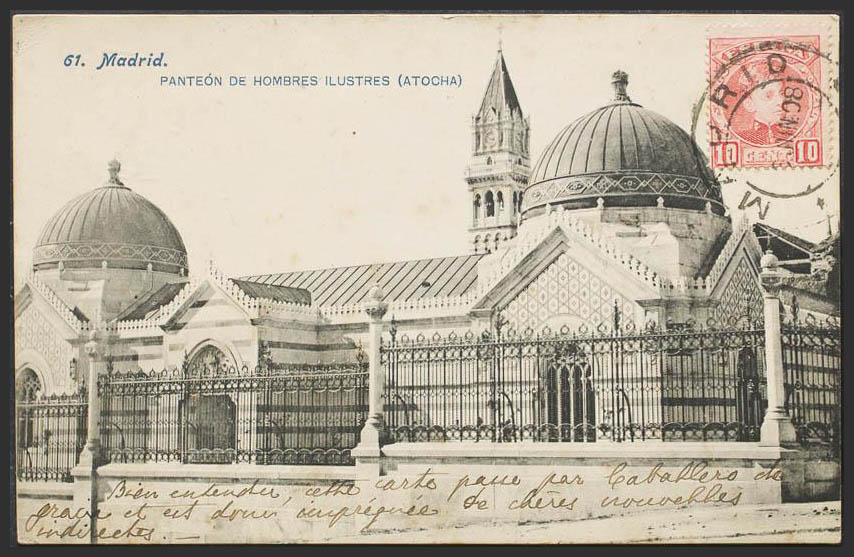 61. Madrid.
PANTEÓN DE HOMBRES ILUSTRES (ATOCHA)
10 CENT 10
Bien entendu, cette carte passe par Caballero de
grace et est donc imprégnée de chères nouvelles
indirectes. —